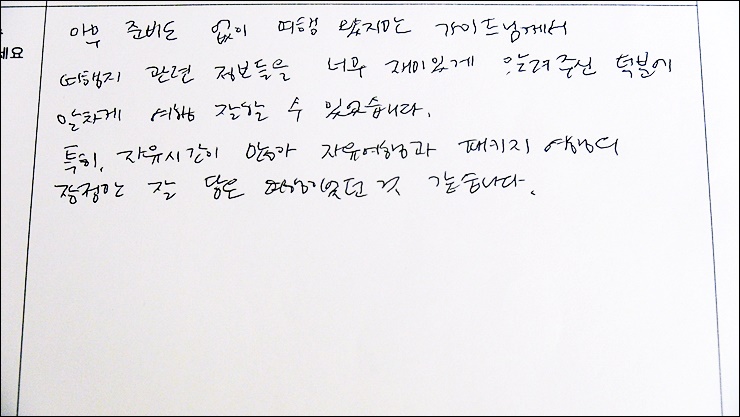 아무 준비도 없이 여행 왔지만 가이드님께서
여행지 관련 정보들을 너무 재미있게 알려주신 덕분에
알차게 여행 잘할 수 있었습니다.
특히, 자유시간이 많아 자유여행과 패키지 여행의
장점만 잘 담은 여행이었던 것 같습니다.
세요